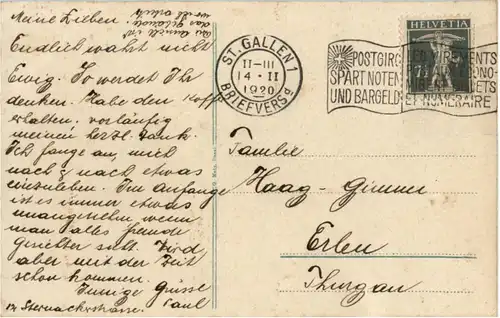 Meine Lieben!
Endlich wahrt nicht
Ewig. So werdet Ihr
denken. Habe den Koffer
erhalten. vorläufig
meinen herzl. Dank.
Ich fange an, mich
nach & nach etwas
einzuleben. Im Anfange
ist es immer etwas
unangenehm wenn
man alles fremde
Gesichter sieht. Wird
aber mit der Zeit
schon kommen.
Innige Grüsse
Paul
Sternackerstrasse.
ST. GALLEN 1
II-III
14·II
1920
BRIEFVERSg
POSTGIRO
SPART NOTEN
UND BARGELD
ET NUMERAIRE
HELVETIA
Familie
Haag-Gimmi
Erlen
Thurgau